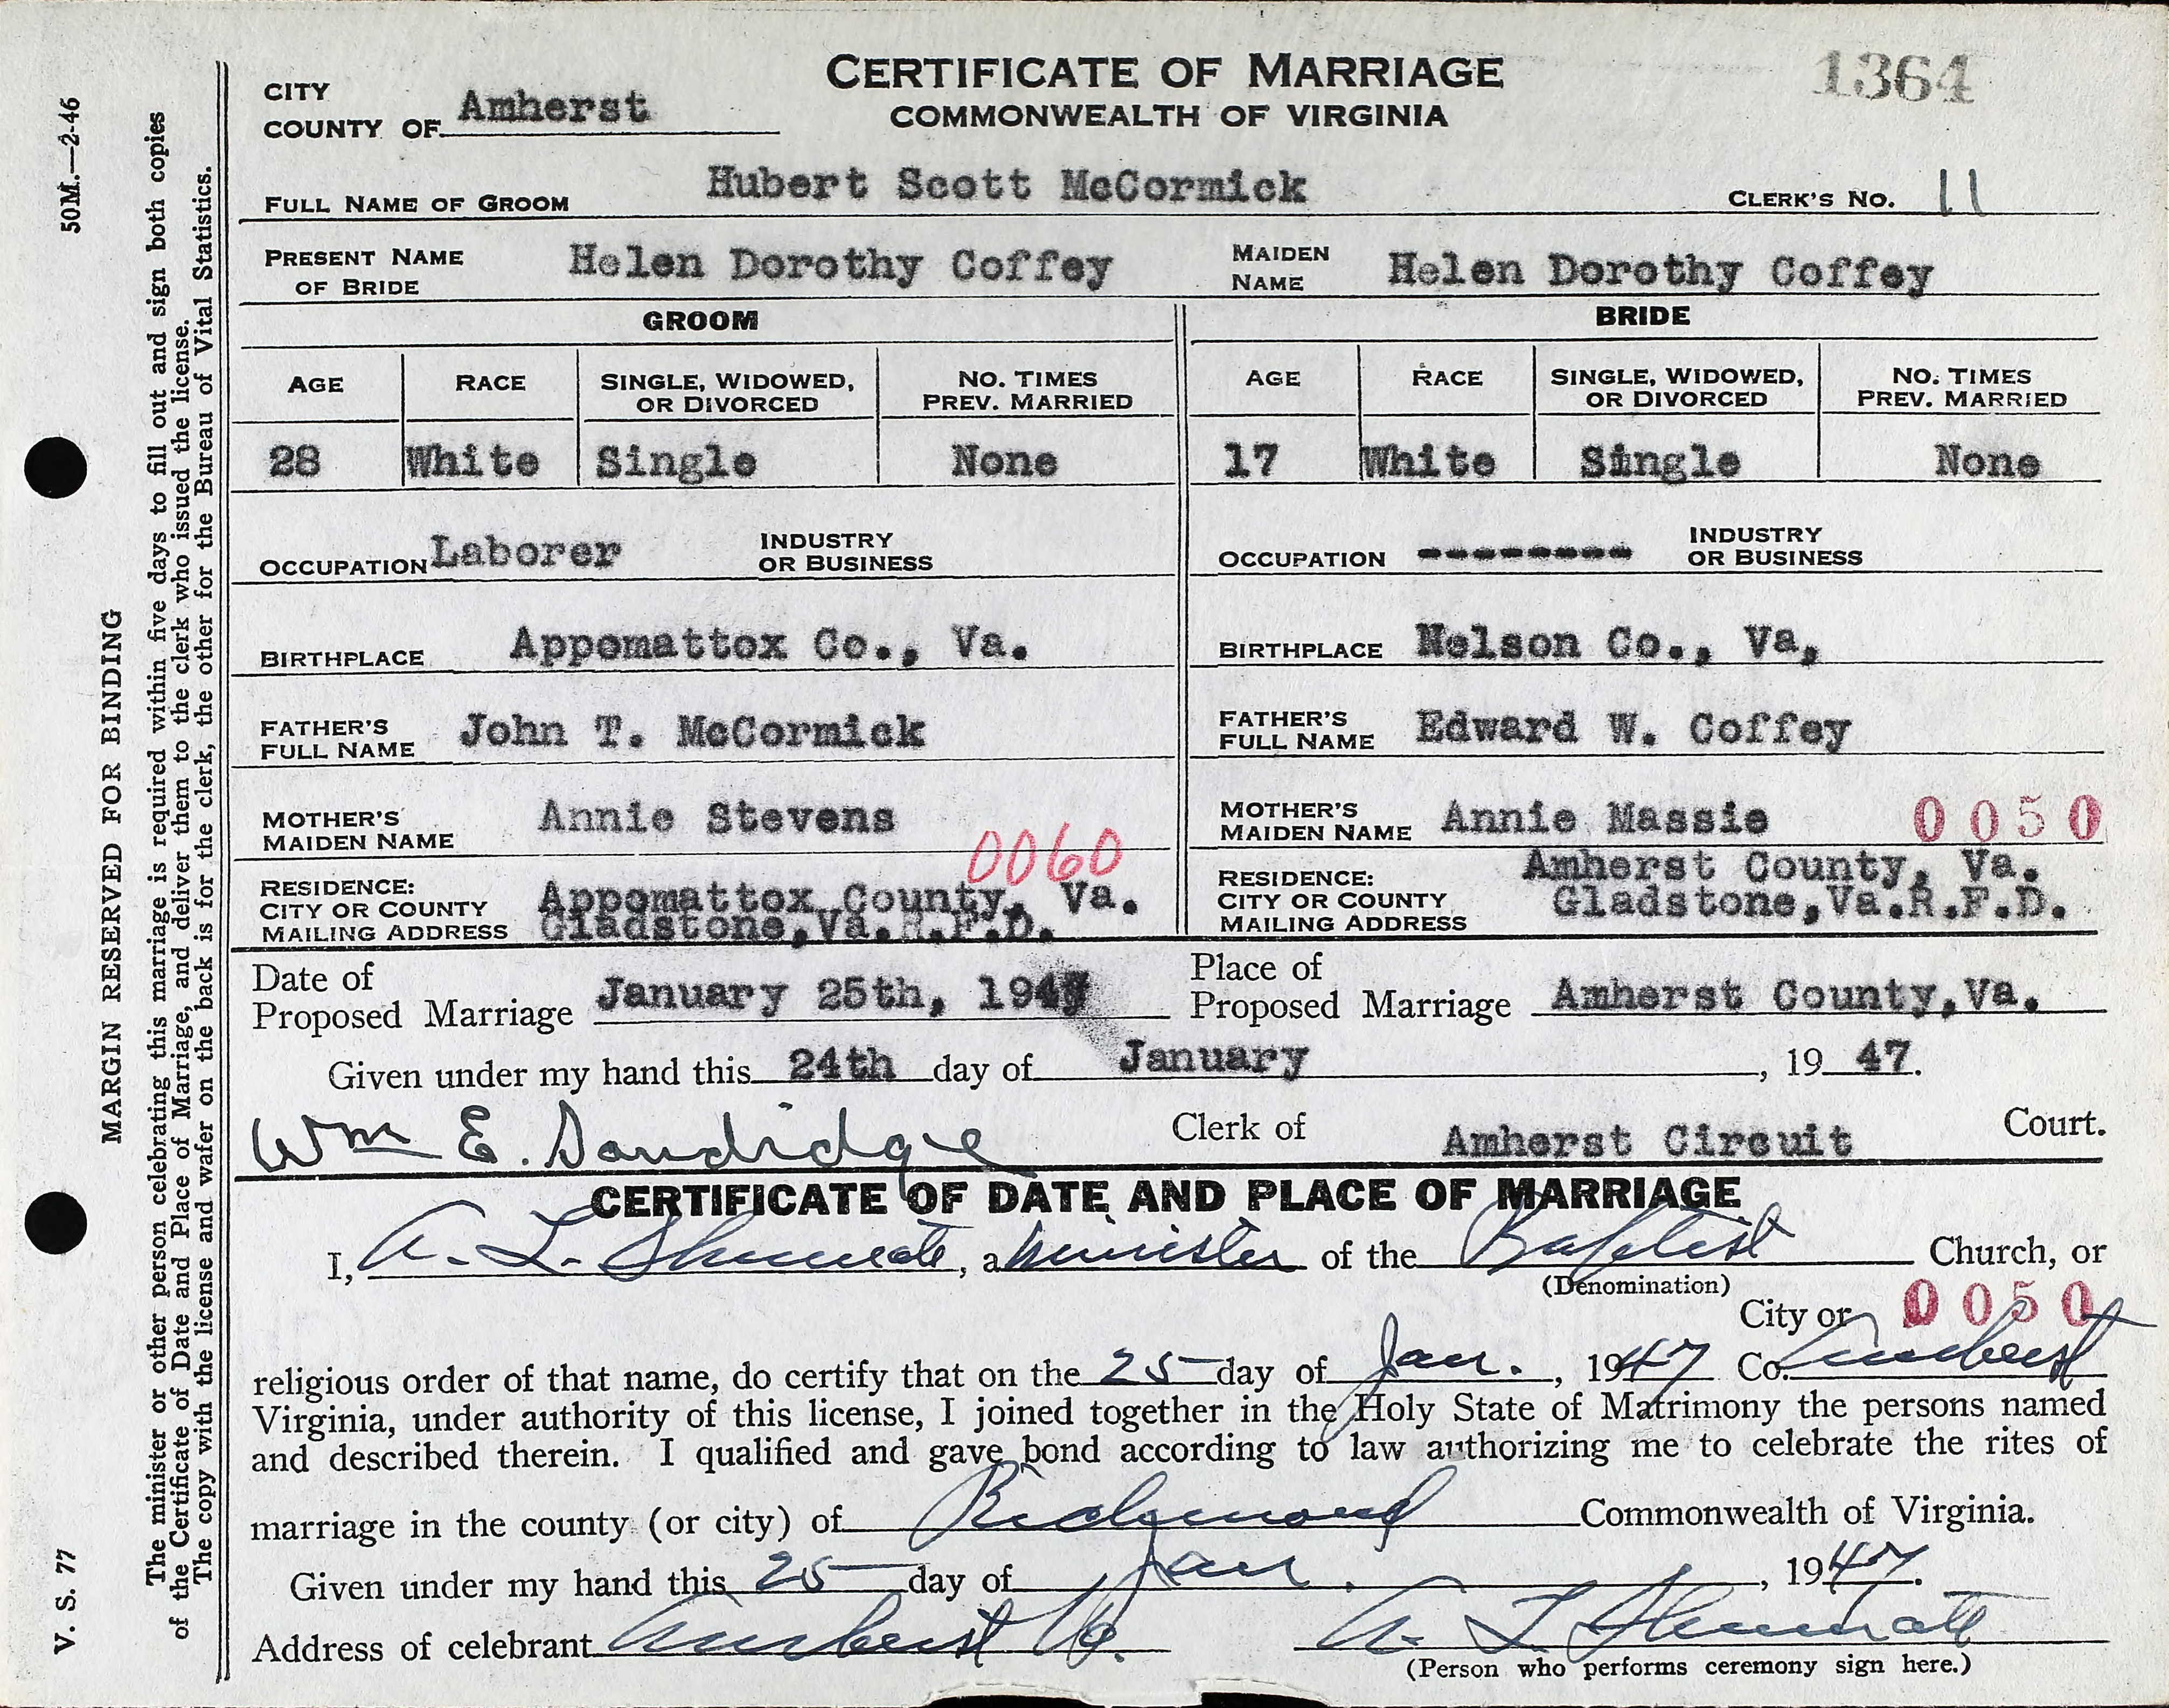 CERTIFICATE OF MARRIAGE
COMMONWEALTH OF VIRGINIA
1364
CITY
COUNTY OF Amherst
FULL NAME OF GROOM Hubert Scott McCormick CLERK'S NO. 11
PRESENT NAME OF BRIDE Helen Dorothy Coffey MAIDEN NAME Helen Dorothy Coffey
GROOM BRIDE
AGE RACE SINGLE, WIDOWED, OR DIVORCED NO. TIMES PREV. MARRIED AGE RACE SINGLE, WIDOWED, OR DIVORCED NO. TIMES PREV. MARRIED
28 White Single None 17 White Single None
OCCUPATION Laborer INDUSTRY OR BUSINESS OCCUPATION --------- INDUSTRY OR BUSINESS
BIRTHPLACE Appomattox Co., Va. BIRTHPLACE Nelson Co., Va,
FATHER'S FULL NAME John T. McCormick FATHER'S FULL NAME Edward W. Coffey
MOTHER'S MAIDEN NAME Annie Stevens MOTHER'S MAIDEN NAME Annie Massie 0050
0060
RESIDENCE: CITY OR COUNTY Appomattox County, Va. RESIDENCE: CITY OR COUNTY Amherst County, Va.
MAILING ADDRESS Gladstone,Va.R.F.D. MAILING ADDRESS Gladstone,Va.R.F.D.
Date of Proposed Marriage January 25th, 1947 Place of Proposed Marriage Amherst County,Va.
Given under my hand this 24th day of January, 19 47.
Wm E. Sandidge Clerk of Amherst Circuit Court.
CERTIFICATE OF DATE AND PLACE OF MARRIAGE
I, A. L. Shumate, a Minister of the Baptist Church, or
(Denomination)
City or 0050
religious order of that name, do certify that on the 25 day of Jan., 1947 Co. Amherst
Virginia, under authority of this license, I joined together in the Holy State of Matrimony the persons named
and described therein. I qualified and gave bond according to law authorizing me to celebrate the rites of
marriage in the county (or city) of Richmond Commonwealth of Virginia.
Given under my hand this 25 day of Jan., 1947.
Address of celebrant Amherst Va. A. L. Shumate
(Person who performs ceremony sign here.)
50M.—2-46
MARGIN RESERVED FOR BINDING
V. S. 77
The minister or other person celebrating this marriage is required within five days to fill out and sign both copies
of the Certificate of Date and Place of Marriage, and deliver them to the clerk who issued the license.
The copy with the license and wafer on the back is for the clerk, the other for the Bureau of Vital Statistics.